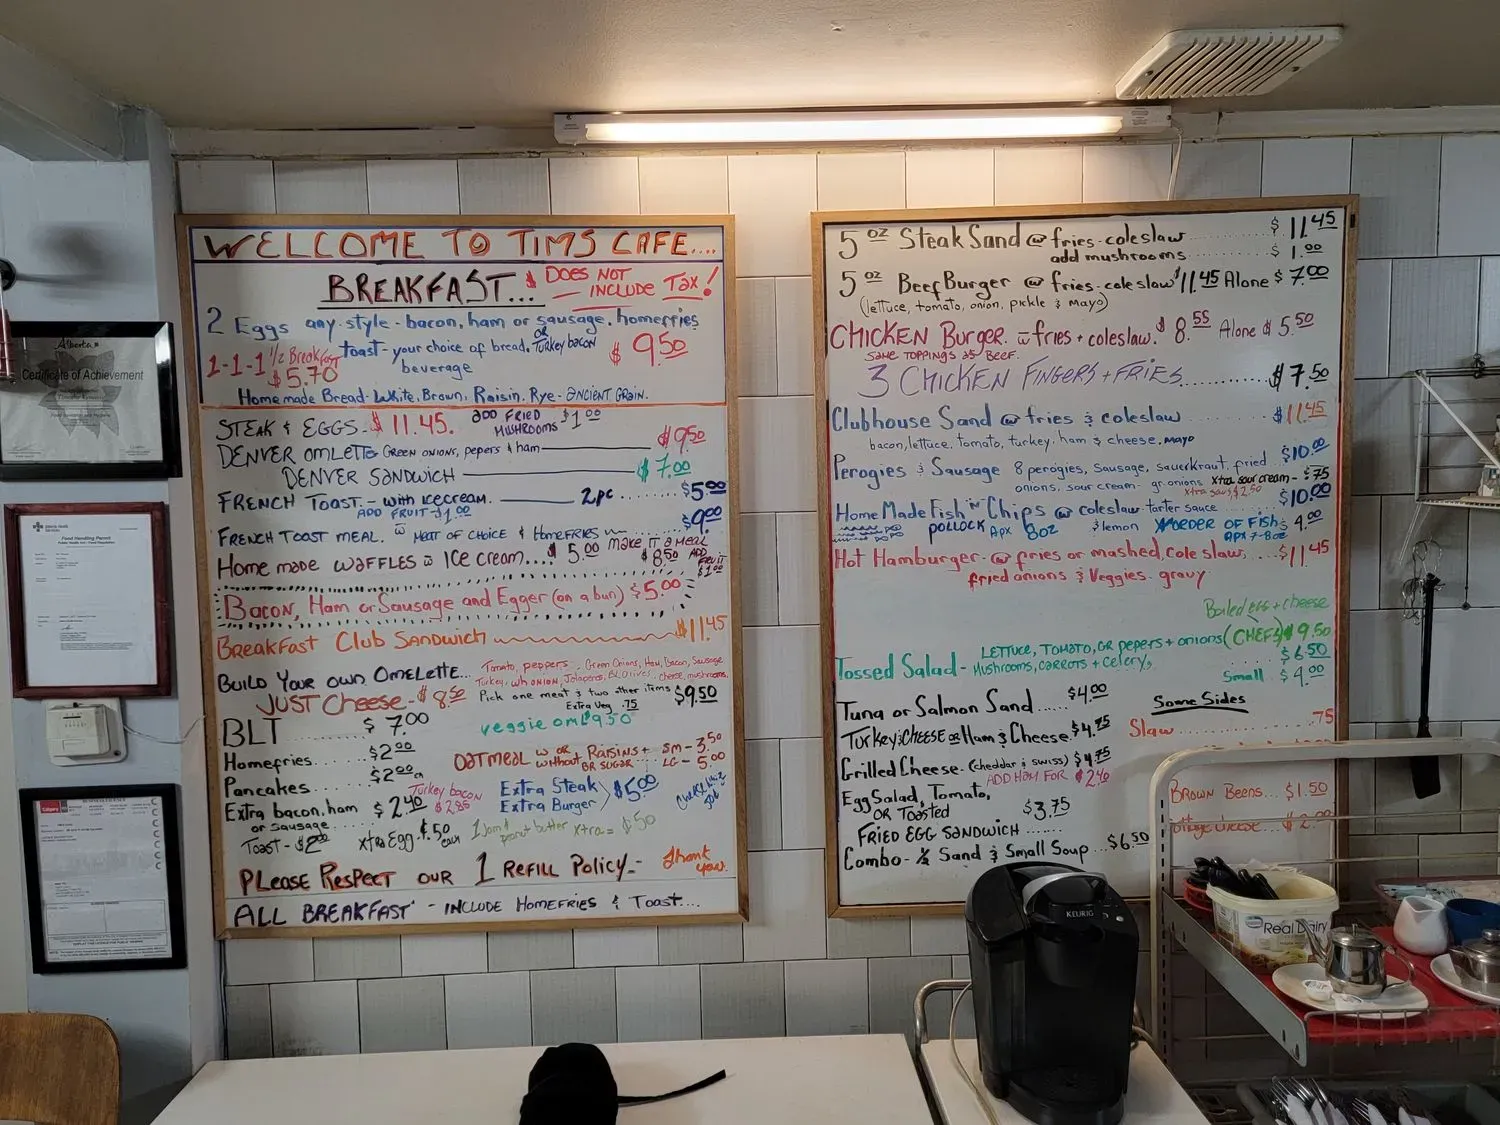 WELCOME TO TIMS CAFE....
BREAKFAST...
$ DOES NOT
INCLUDE TAX!
2 Eggs any style - bacon, ham or sausage, homefries
OR
toast - your choice of bread, Turkey bacon
beverage
$ 9.50
1-1-1 1/2 Breakfast
$ 5.70
Homemade Bread - White, Brown, Raisin, Rye - ANCIENT GRAIN.
STEAK & EGGS - $ 11.45. ADD FRIED MUSHROOMS $1.00
DENVER OMLETTE GREEN ONIONS, PEPERS & HAM $ 9.50
DENVER SANDWICH $ 7.00
FRENCH TOAST - with ICECREAM. 2 PC ...... $5.00
ADD FRUIT - $1.00
FRENCH TOAST MEAL. w MEAT OF CHOICE & HOMEFRIES $9.00
Home made WAFFLES w ICE CREAM.... $ 5.00 MAKE IT A MEAL $8.50 ADD FRUIT $1.00
BACON, HAM or SAUSAGE and EGGER (on a bun) $5.00
BREAKFAST CLUB SANDWICH $11.45
BUILD YOUR OWN OMELETTE...
Tomato, peppers. Green Onions, Ham, Bacon, Sausage
Turkey, WH ONION, Jalapenos, BL OLIVES, cheese, mushrooms.
JUST CHEESE - $ 8.50
Pick one meat & two other items $9.50
Extra Veg .75
BLT $ 7.00
veggie oml 9.50
Homefries... $2.00
OATMEAL w OR without RAISINS + OR SUGAR
SM - 3.50
LG - 5.00
Pancakes.... $2.00 EA
Turkey bacon
$ 2.85
Extra bacon, ham $ 2.40
or sausage
Extra Steak
Extra Burger
$5.00
Toast - $2.00
xtra Egg $1.50 each
1 Jam & peanut butter xtra = $.50
PLEASE RESPECT OUR 1 REFILL POLICY - Thank you.
ALL BREAKFAST' - INCLUDE HOMEFRIES & TOAST...
5 OZ Steak Sand @ fries - coleslaw ....... $ 11.45
add mushrooms ....... $ 1.00
5 OZ Beef Burger @ fries - coleslaw $11.45 Alone $ 7.00
(lettuce, tomato, onion, pickle & mayo)
CHICKEN Burger. w fries + coleslaw. $ 8.55 Alone $ 5.50
SAME TOPPINGS AS BEEF.
3 CHICKEN FINGERS + FRIES........ $ 7.50
Clubhouse Sand @ fries & coleslaw ....... $11.45
bacon, lettuce, tomato, turkey, ham & cheese, mayo
Perogies & Sausage 8 perogies, Sausage, sauerkraut, fried $10.00
onions, sour cream - gr. onions xtra sour cream - $.75
xtra saus $2.50
Home Made Fish 'n' Chips @ coleslaw tarter sauce $10.00
POLLOCK Apx 8oz & lemon
X ORDER OF FISH $ 4.00
APX 7-8oz
Hot Hamburger - @ fries or mashed, coleslaw ... $11.45
fried onions & Veggies - gravy
Boiled egg + cheese
LETTUCE, TOMATO, GR pepers + onions (CHEFS) $ 9.50
Tossed Salad - MUSHROOMS, CARROTS + Celery, $ 6.50
Small $ 4.00
Tuna or Salmon Sand..... $4.00
Some Sides
Turkey & CHEESE OR Ham & Cheese. $4.75
Slaw ........ .75
Grilled Cheese - (cheddar & swiss) $4.75
ADD HAM FOR $ 2.40
Egg Salad, Tomato,
OR TOASTED $3.75
BROWN Beens... $1.50
FRIED EGG SANDWICH .......
$ 2.00
Combo - 1/2 Sand & Small Soup... $6.50
Alberta
Certificate of Achievement
Food Handling Permit
KEURIG
Real Dairy